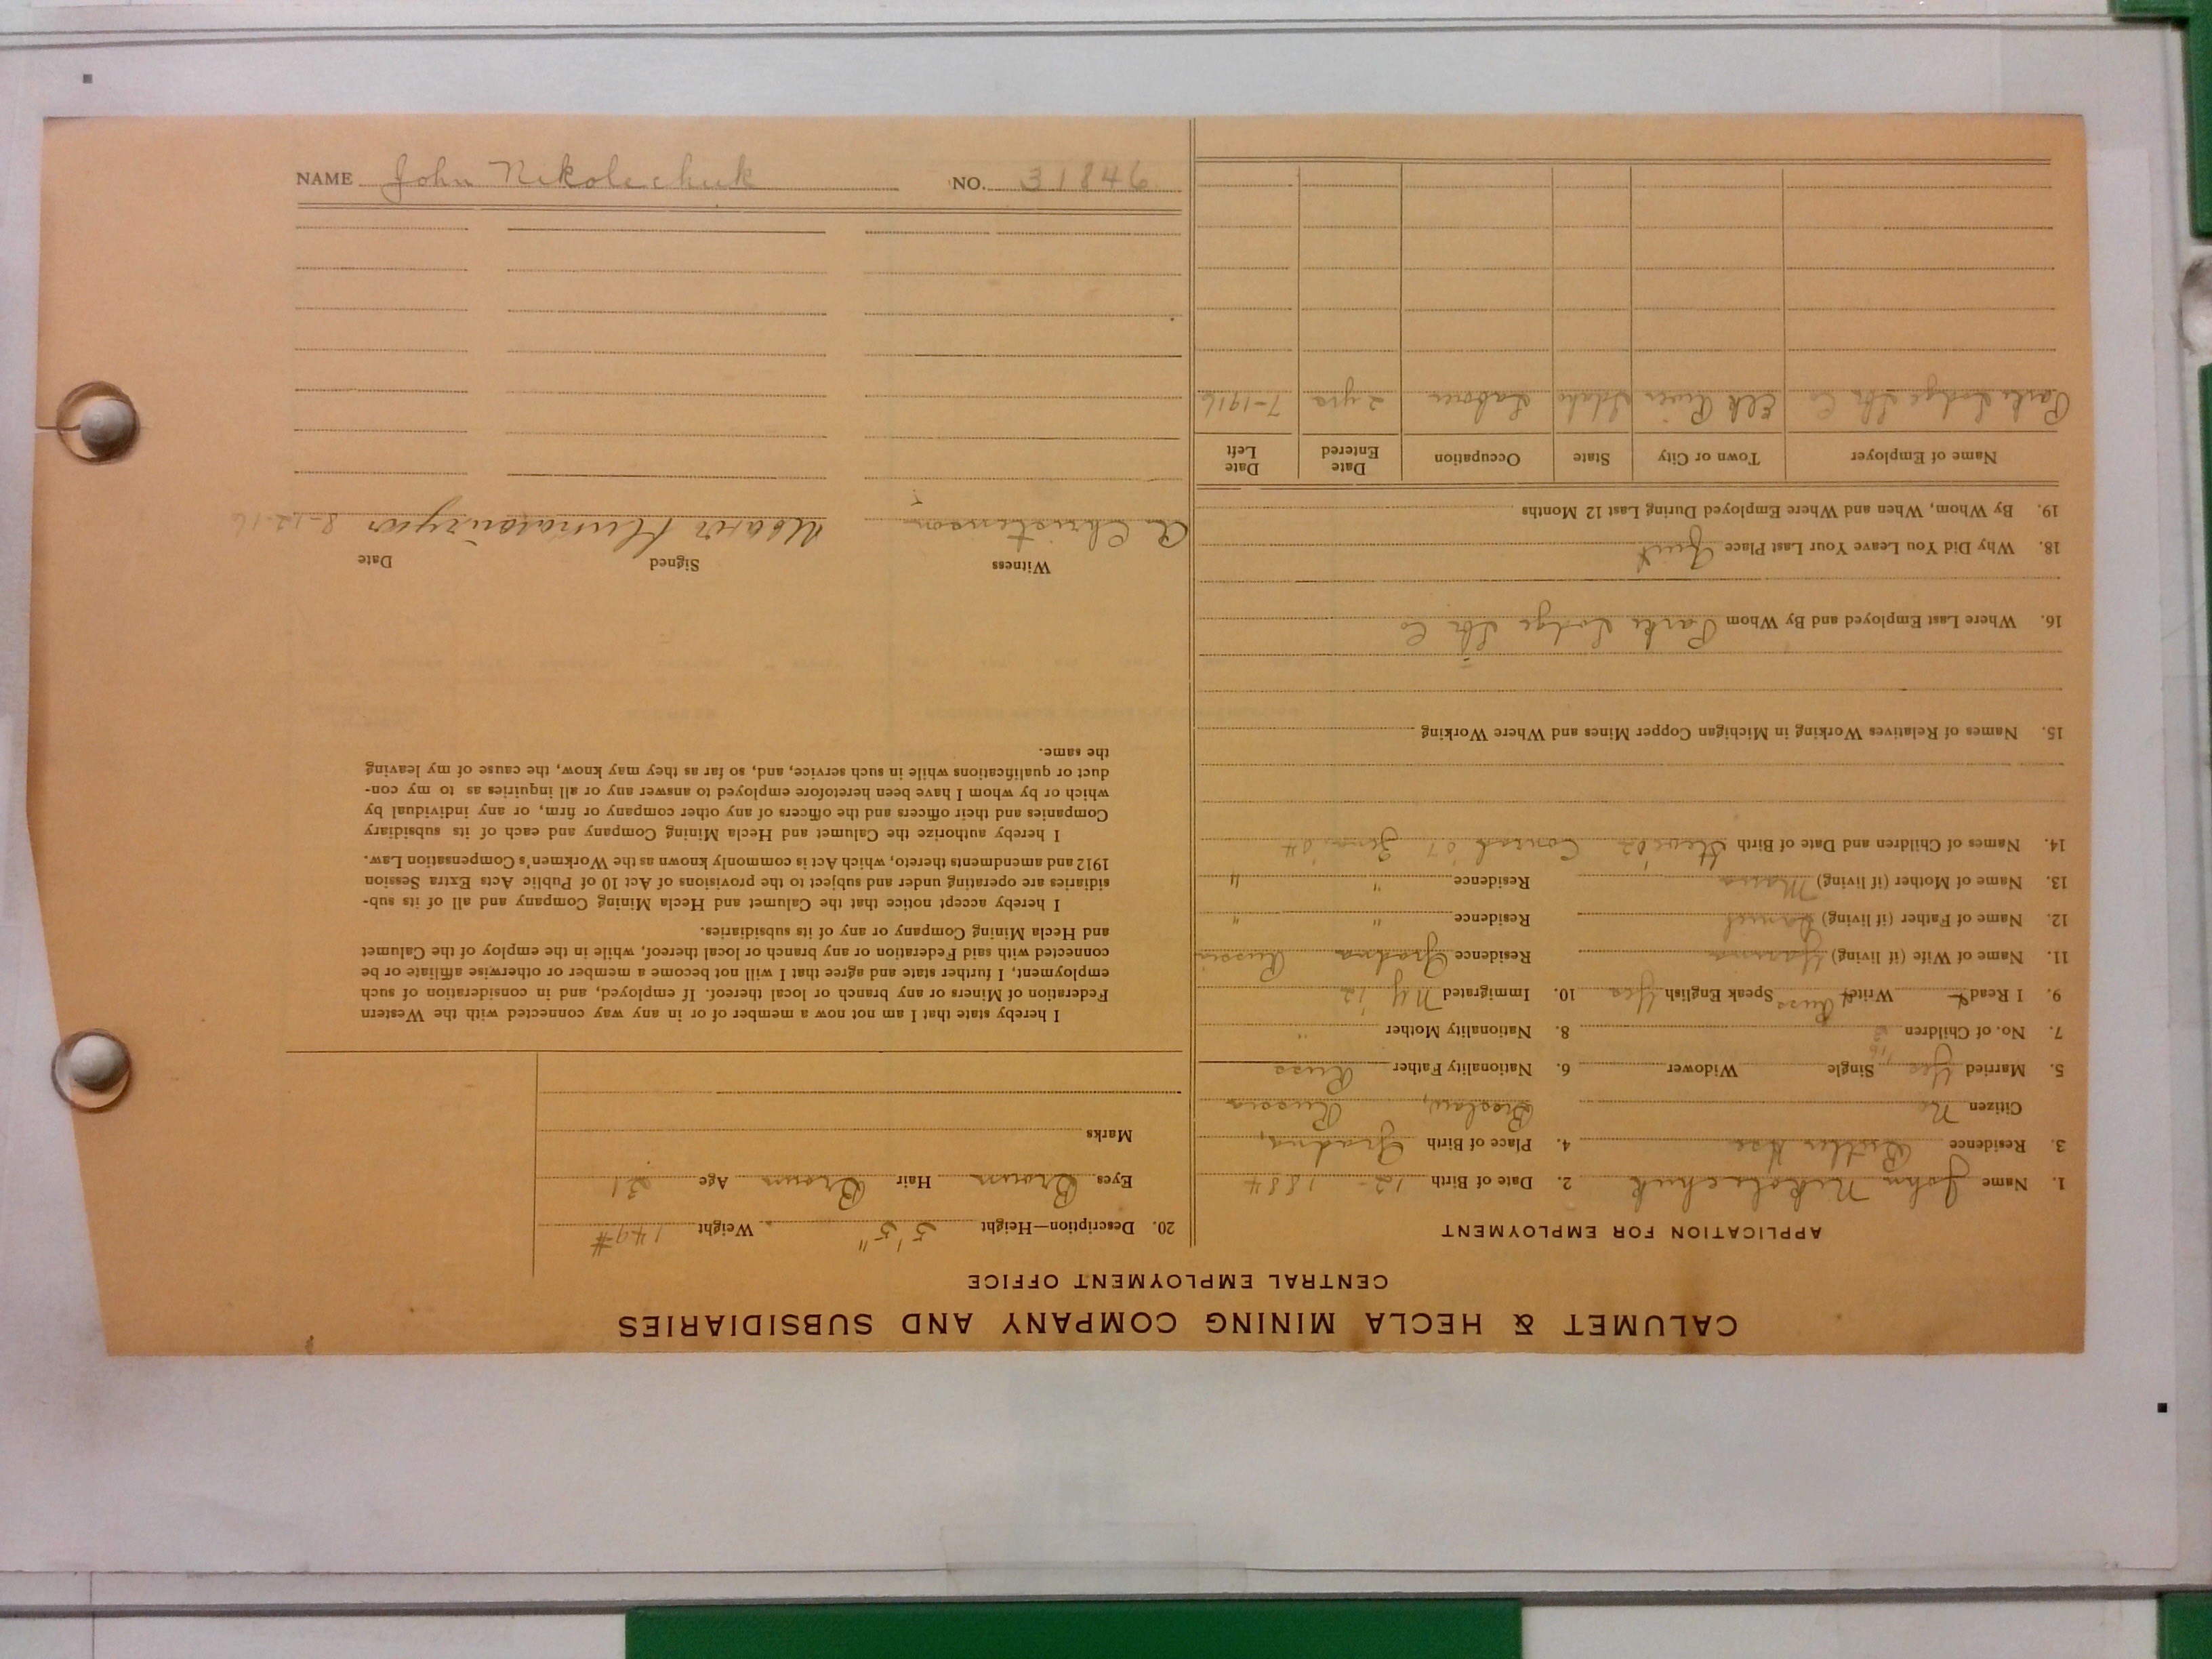 NAME John Nikolechuk NO. 31846
CALUMET & HECLA MINING COMPANY AND SUBSIDIARIES
CENTRAL EMPLOYMENT OFFICE
APPLICATION FOR EMPLOYMENT
1. Name John Nikolechuk 2. Date of Birth 12 - 1884
3. Residence Butler Hse 4. Place of Birth Gradna,
Citizen No Russia
5. Married Yes Single Widower 6. Nationality Father Russ
7. No. of Children 8. Nationality Mother "
9. I Read Write Russ Speak English Yes 10. Immigrated NY '12
11. Name of Wife (if living) Residence Gradna Russia
12. Name of Father (if living) Daniel Residence " "
13. Name of Mother (if living) Maria Residence " "
14. Names of Children and Date of Birth Conrad '07 '04
15. Names of Relatives Working in Michigan Copper Mines and Where Working
16. Where Last Employed and By Whom Lbr Co
18. Why Did You Leave Your Last Place Quit
19. By Whom, When and Where Employed During Last 12 Months
Name of Employer Town or City State Occupation Date Entered Date Left
Lbr Co Elk River Idaho Laborer 2 yrs 7-1916
20. Description—Height 5' 5" Weight 149#
Eyes Brown Hair Brown Age 31
Marks
I hereby state that I am not now a member of or in any way connected with the Western
Federation of Miners or any branch or local thereof. If employed, and in consideration of such
employment, I further state and agree that I will not become a member or otherwise affiliate or be
connected with said Federation or any branch or local thereof, while in the employ of the Calumet
and Hecla Mining Company or any of its subsidiaries.
I hereby accept notice that the Calumet and Hecla Mining Company and all of its sub-
sidiaries are operating under and subject to the provisions of Act 10 of Public Acts Extra Session
1912 and amendments thereto, which Act is commonly known as the Workmen's Compensation Law.
I hereby authorize the Calumet and Hecla Mining Company and each of its subsidiary
Companies and their officers and the officers of any other company or firm, or any individual by
which or by whom I have been heretofore employed to answer any or all inquiries as to my con-
duct or qualifications while in such service, and, so far as they may know, the cause of my leaving
the same.
Witness Signed Date
A Christenson 8-12-16